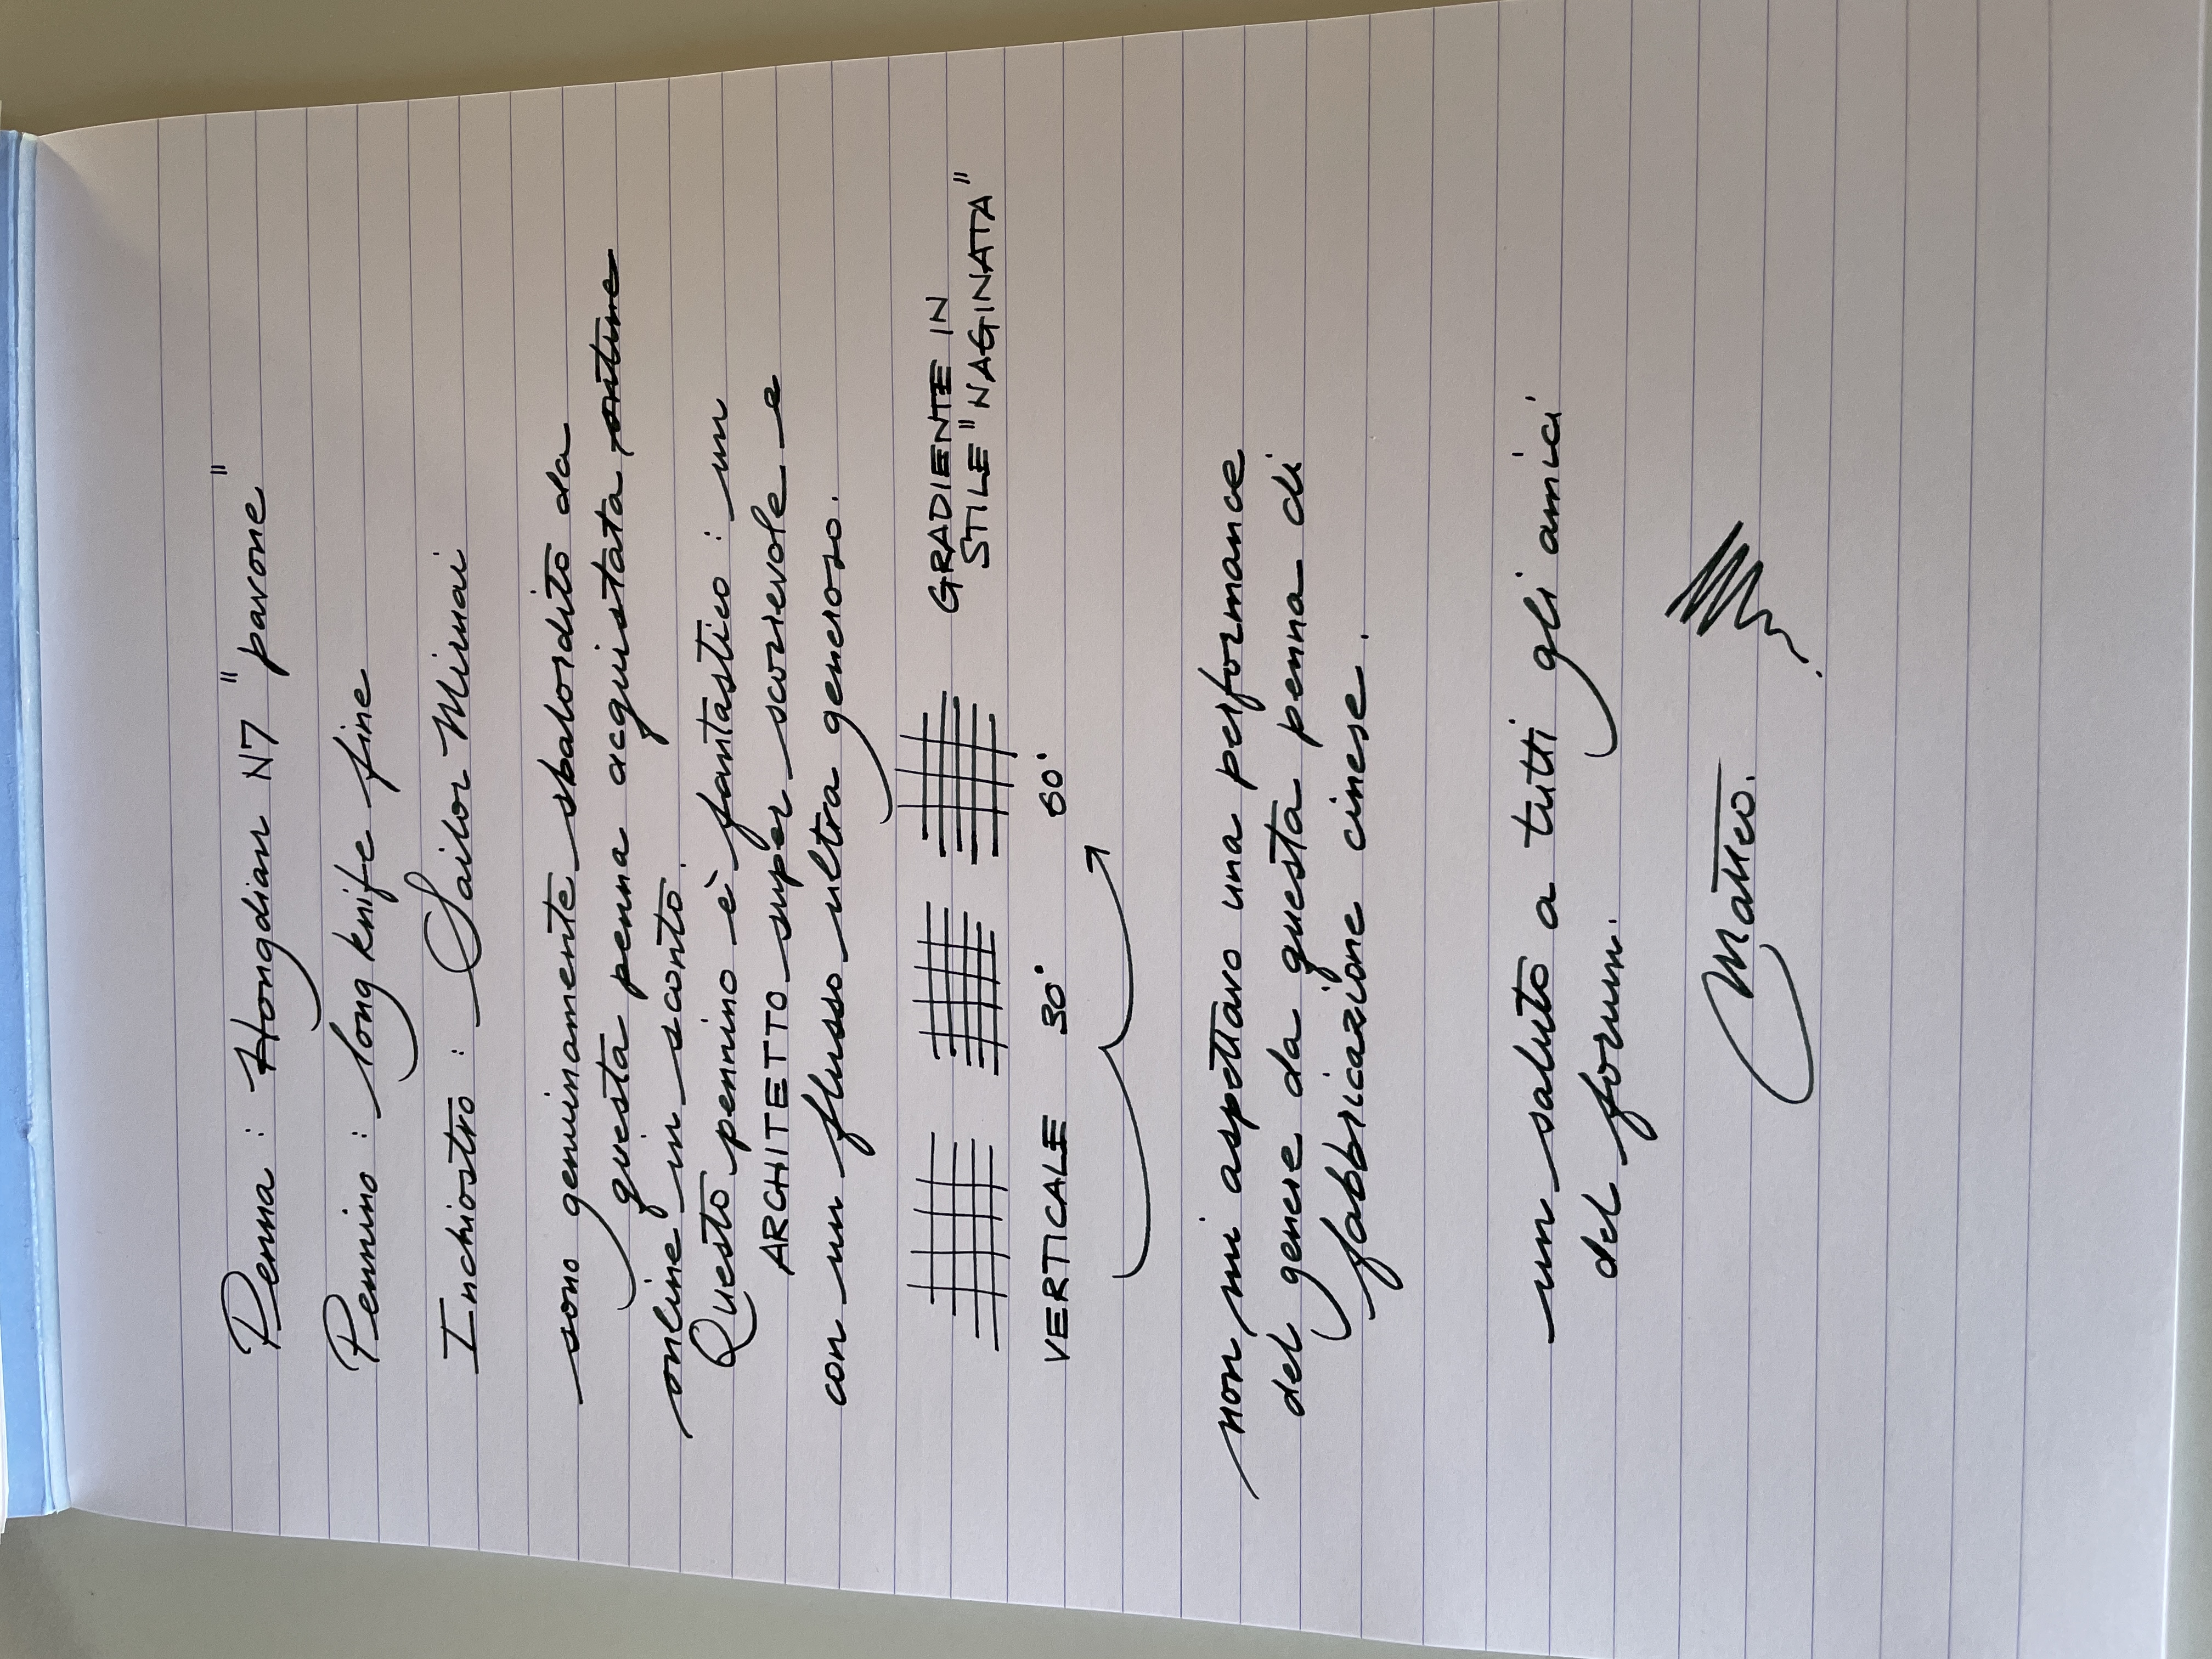 Penna : Hongdian N7 "pavone"
Pennino : long knife fine
Inchiostro : Sailor Miruai
sono genuinamente sbalordito da
questa penna acquistata
online in sconto.
Questo pennino è fantastico : un
ARCHITETTO super scorrevole e
con un flusso ultra generoso.
GRADIENTE IN
STILE "NAGINATA"
VERTICALE 30° 60°
non mi aspettavo una performance
del genere da questa penna di
fabbricazione cinese.
un saluto a tutti gli amici
del forum.
Matteo.